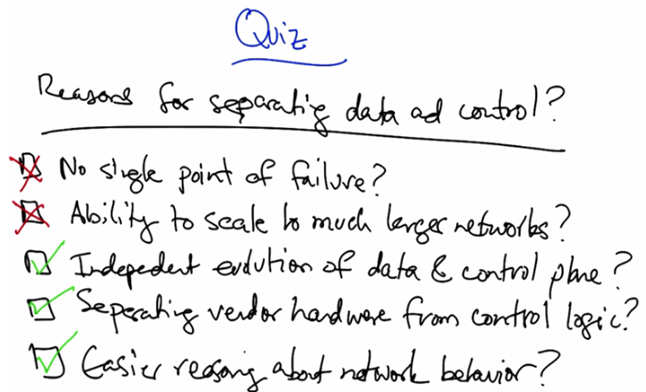 Quiz
Reasons for separating data ad control?
No single point of failure?
Ability to scale to much larger networks?
Indepedent evolution of data & control plane?
Seperating vendor hardware from control logic?
Easier reasoning about network behavior?